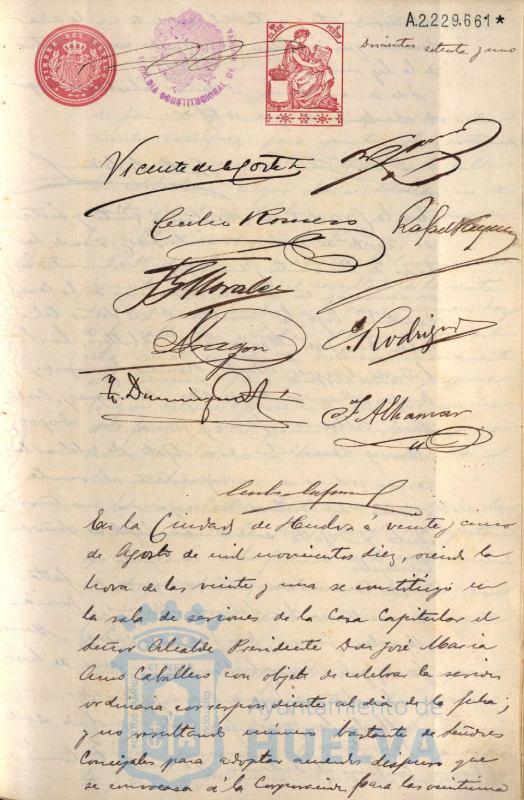 A.2.229.661*
Doscientos setenta y uno
TIMBRE DEL ESTADO
CONSTITUCIONAL DE
Vicente de la Corte
Cecilio Romero
Rafael Vazquez
J. Morales
Aragon
Rodriguez
Dominguez
F. Alhamar
En la Ciudad de Huelva á veinte y cinco
de Agosto de mil novecientos diez, siendo la
hora de las veinte y una se constituyó en
la sala de sesiones de la Casa Capitular el
Señor Alcalde Presidente Don José Maria
Amo Caballero con objeto de celebrar la sesion
ordinaria correspondiente al dia de la fecha;
y no resultando número bastante de Señores
Concejales para adoptar acuerdos dispuso que
se convocara á la Corporacion para las veintiuna
Ayuntamiento de
HUELVA